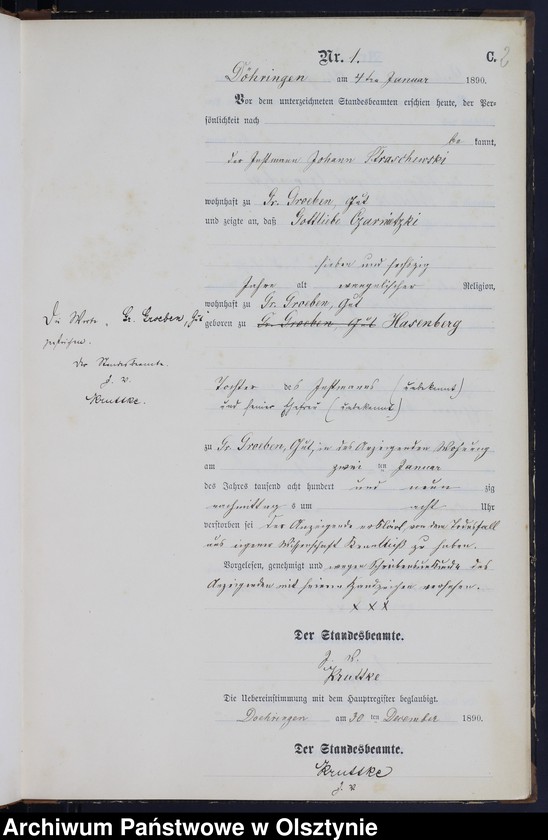 Nr. 1.
C. 2
Döhringen am 4ten Januar 1890.
Vor dem unterzeichneten Standesbeamten erschien heute, der Per-
sönlichkeit nach
be kannt,
der Instmann Johann Straschewski
wohnhaft zu Gr. Groeben, Gut
und zeigte an, daß Gottliebe Czarnetzki
sieben und sechszig
Jahre alt evangelischer Religion,
wohnhaft zu Gr. Groeben, Gut
geboren zu Gr. Groeben, Gut Hasenberg
Die Worte „Gr. Groeben, Gut"
gestrichen.
Der Standesbeamte.
J. V.
Kruttke.
Tochter des Instmanns (unbekannt)
und seiner Ehefrau (unbekannt)
zu Gr. Groeben, Gut, in des Anzeigenden Wohnung
am zwei ten Januar
des Jahres tausend acht hundert und neun zig
nachmittag s um acht Uhr
verstorben sei Der Anzeigende erklärt von dem Todesfall
aus eigener Wissenschaft Kenntniß zu haben.
Vorgelesen, genehmigt und wegen Schreibensunkunde des
Anzeigenden mit seinem Handzeichen versehen.
x x x
Der Standesbeamte.
J. V.
Kruttke
Die Uebereinstimmung mit dem Hauptregister beglaubigt.
Doehringen am 30 ten Dezember 1890.
Der Standesbeamte.
Kruttke
J. V.
Archiwum Państwowe w Olsztynie